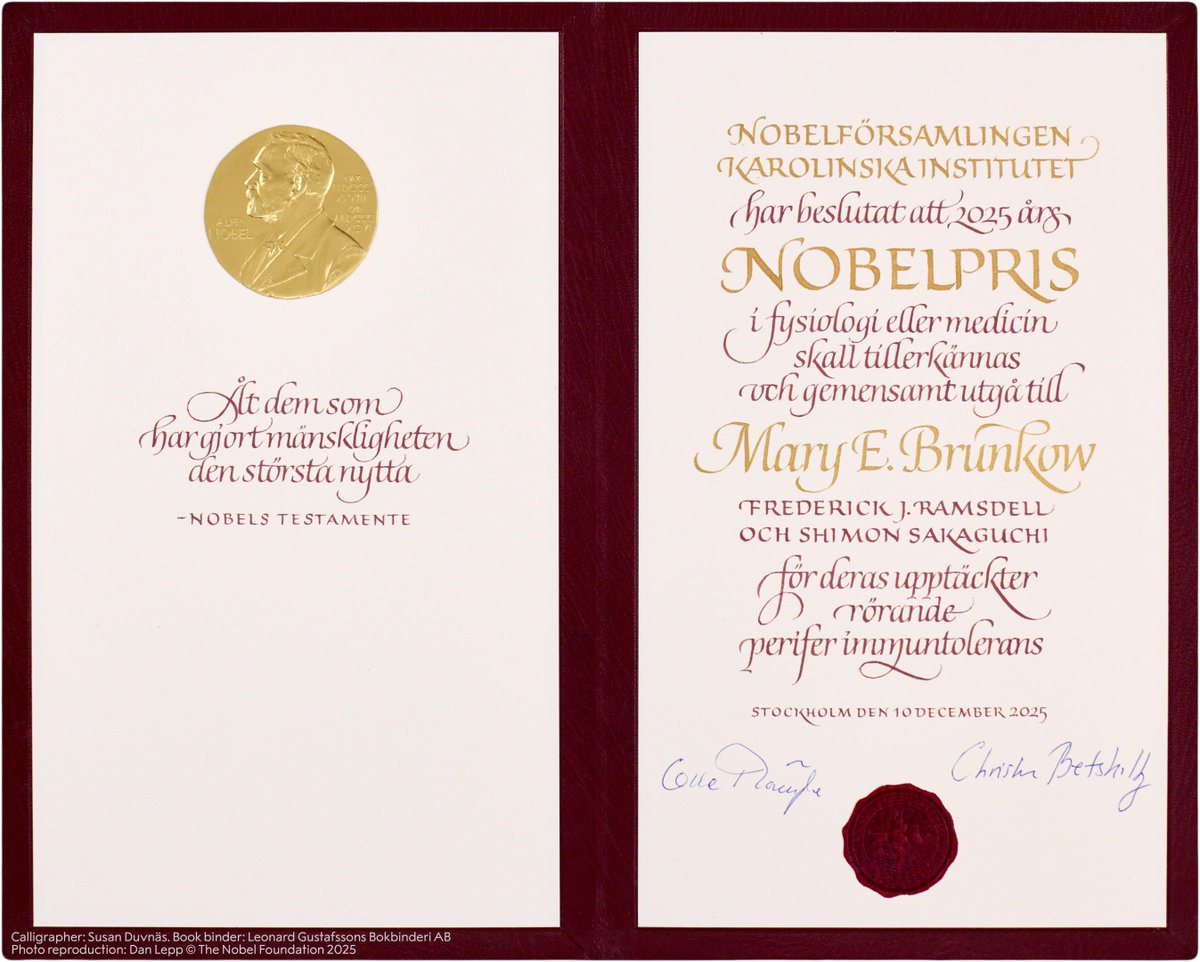 ALFR·
NOBEL
NAT·
MDCCC
XXXIII
OB·
MDCCC
XCVI
Åt dem som
har gjort mänskligheten
den största nytta
–NOBELS TESTAMENTE
NOBELFÖRSAMLINGEN
KAROLINSKA INSTITUTET
har beslutat att 2025 års
NOBELPRIS
i fysiologi eller medicin
skall tillerkännas
och gemensamt utgå till
Mary E. Brunkow
FREDERICK J. RAMSDELL
OCH SHIMON SAKAGUCHI
för deras upptäckter
rörande
perifer immuntolerans
STOCKHOLM DEN 10 DECEMBER 2025
Christer Betsholtz
Calligrapher: Susan Duvnäs. Book binder: Leonard Gustafssons Bokbinderi AB
Photo reproduction: Dan Lepp © The Nobel Foundation 2025